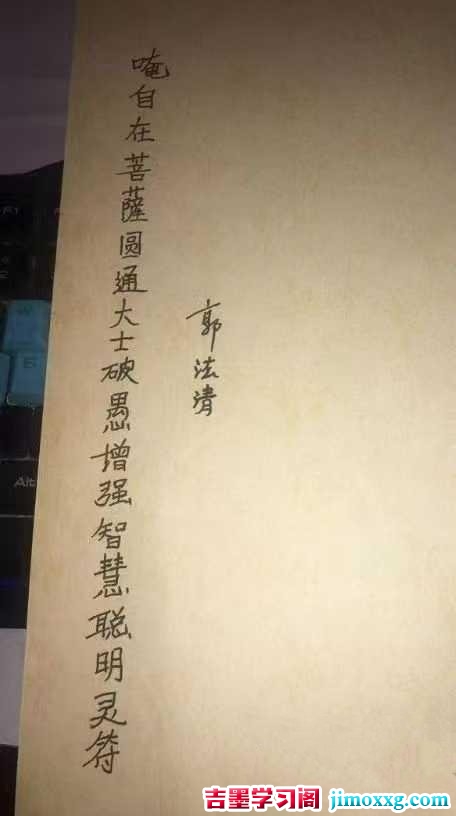 唵自在菩薩圆通大士破愚增强智慧聪明灵符
郭法清
F1
Alt
吉墨学习阁 jimoxxg.com